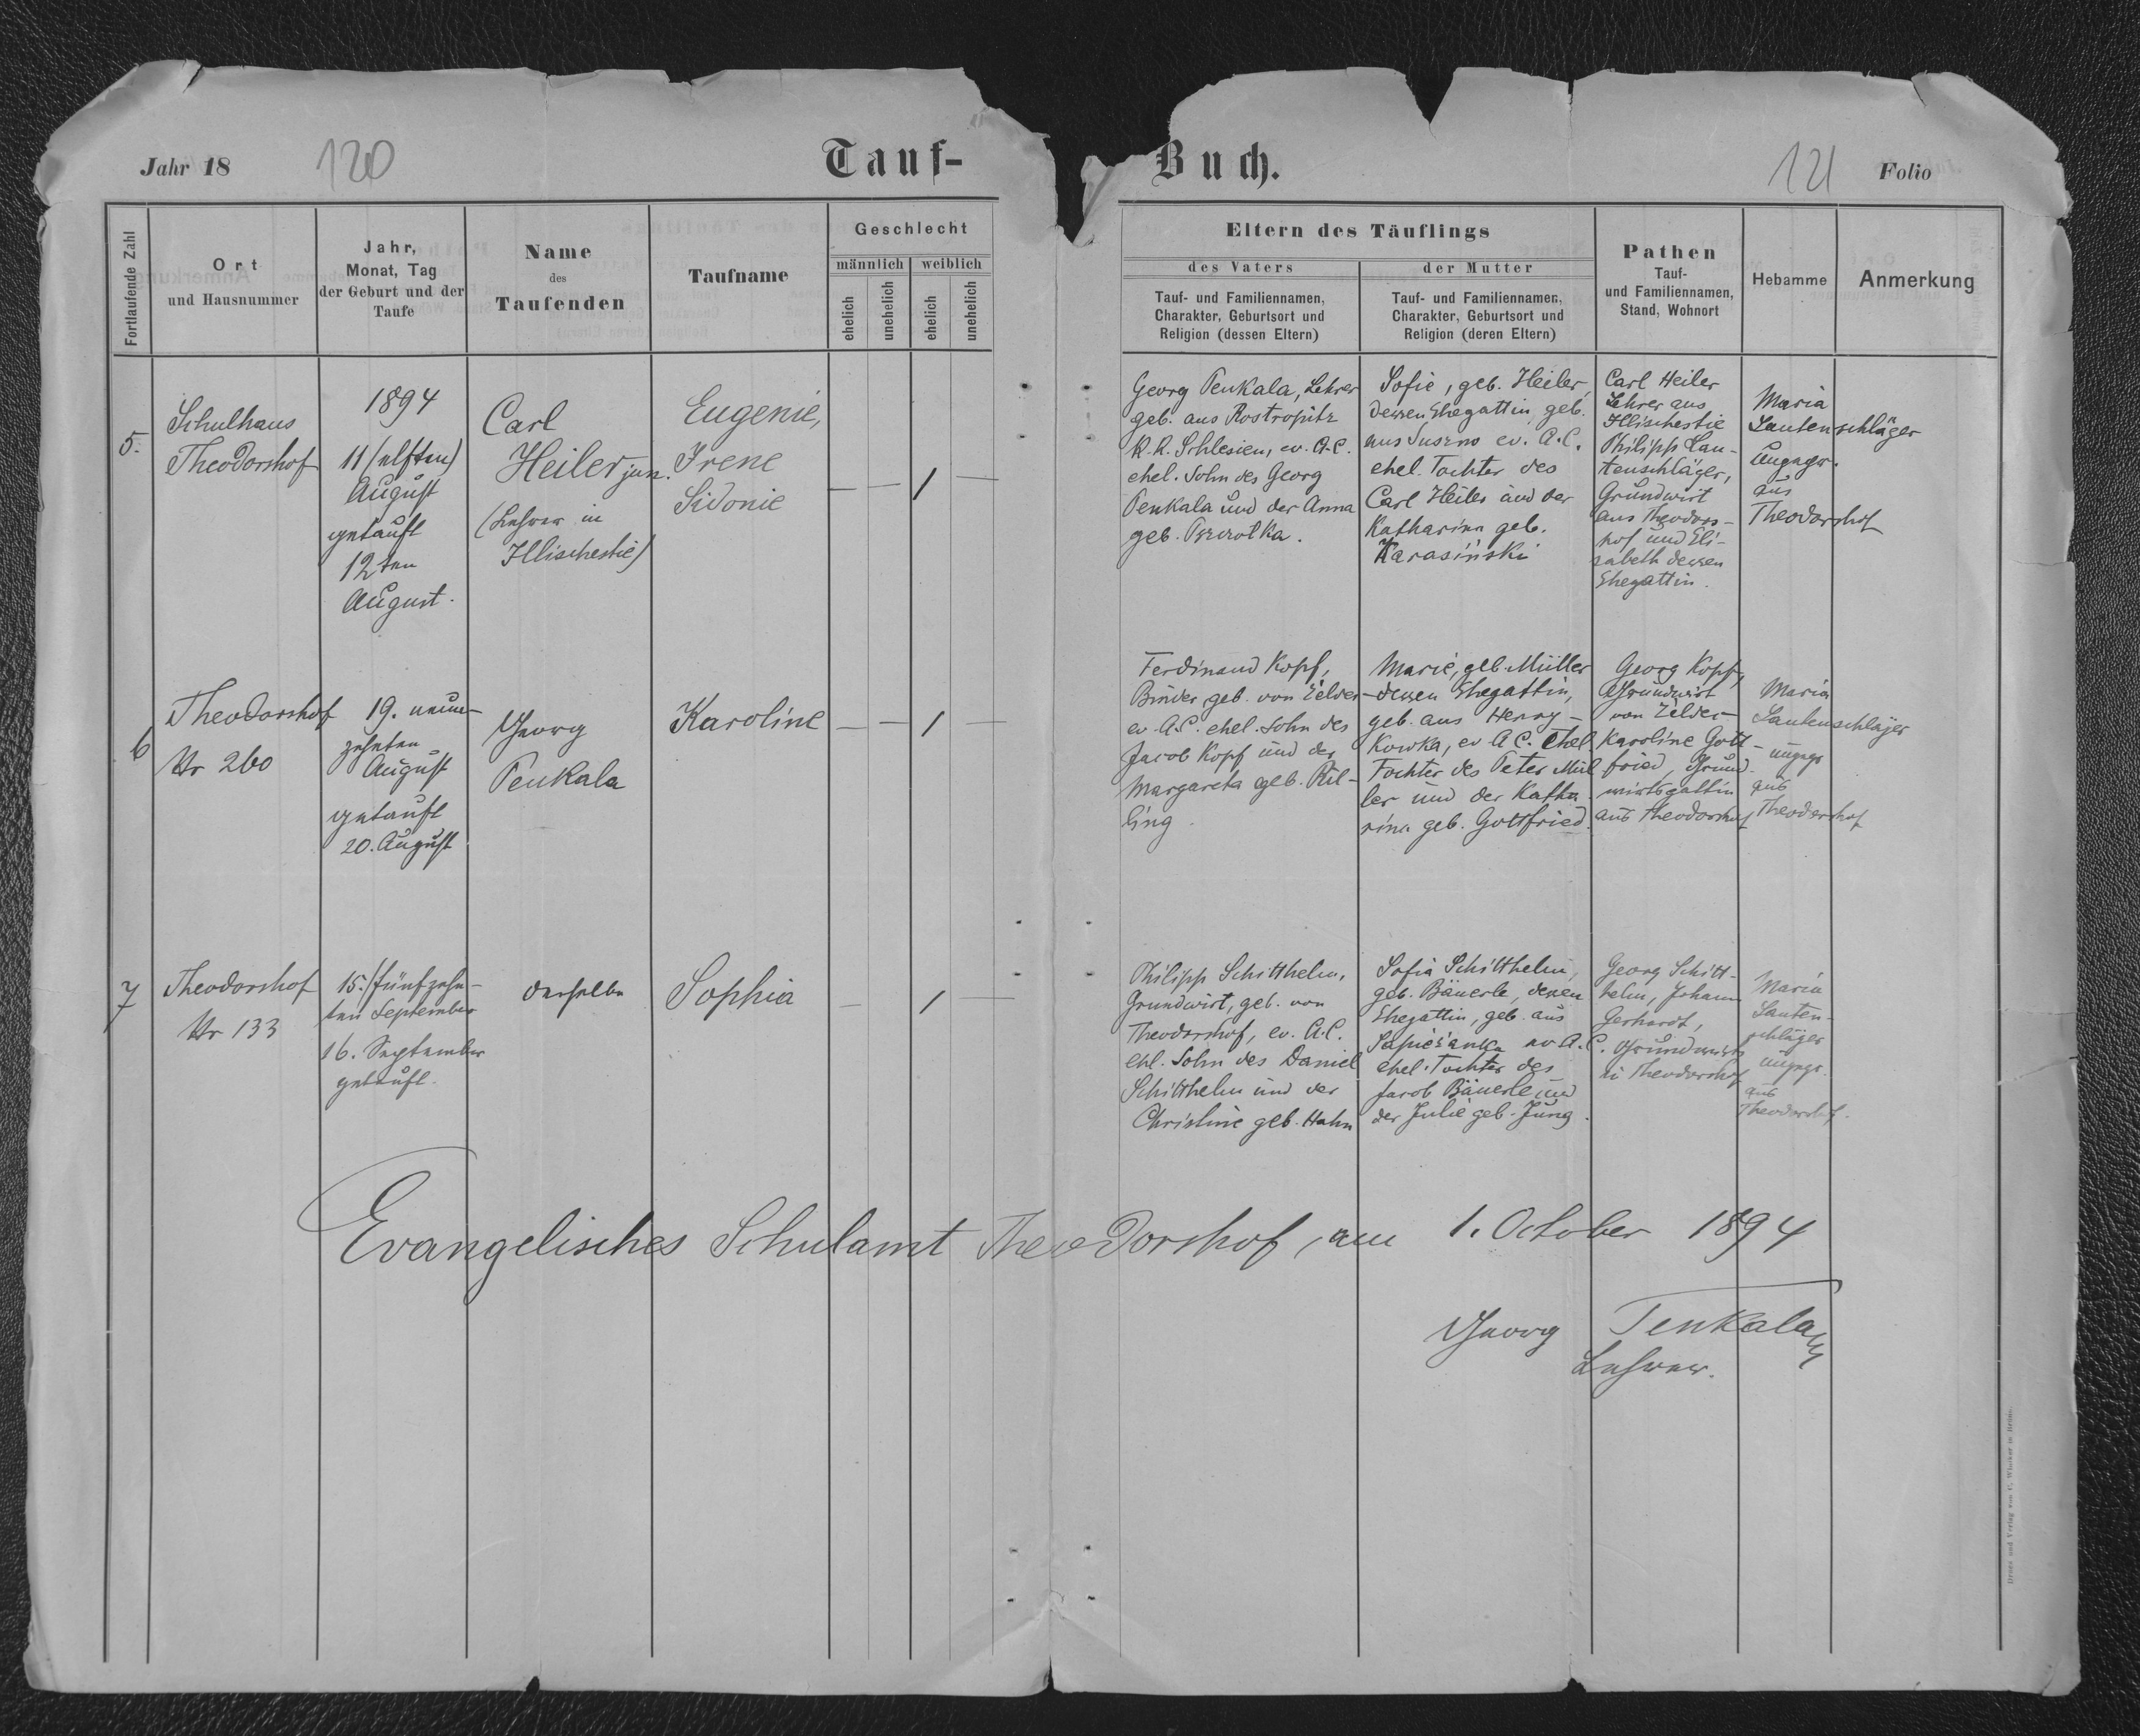 Jahr 18
120
Tauf-
Buch.
121
Folio
Fortlaufende Zahl
Ort
und Hausnummer
Jahr,
Monat, Tag
der Geburt und der
Taufe
Name
des
Taufenden
Taufname
Geschlecht
männlich
weiblich
ehelich
unehelich
ehelich
unehelich
Eltern des Täuflings
des Vaters
Tauf- und Familiennamen,
Charakter, Geburtsort und
Religion (dessen Eltern)
der Mutter
Tauf- und Familiennamen,
Charakter, Geburtsort und
Religion (deren Eltern)
Pathen
Tauf-
und Familiennamen,
Stand, Wohnort
Hebamme
Anmerkung
5.
Schulhaus
Theodorshof
1894
11 (elften)
August
getauft
12ten
August.
Carl
Heiler jun.
(Lehrer in
Illischestie)
Eugenie,
Irene
Sidonie
— — / —
Georg Penkala, Lehrer
geb. aus Rostropitz
k. k. Schlesien, ev. A.C.
ehel. Sohn des Georg
Penkala und der Anna
geb.
Sofie, geb. Heiler,
dessen Ehegattin, geb.
aus Suszno ev. A.C.
ehel. Tochter des
Carl Heiler und der
Katharina geb.
Karasiński
Carl Heiler
Lehrer aus
Illischestie
Philipp Lau-
tenschläger,
Grundwirt
aus Theodors-
hof und Eli-
sabeth dessen
Ehegattin.
Maria
Lautenschläger
ungepr.
aus
Theodorshof
6
Theodorshof
Nr 260
19. neun-
zehnten
August
getauft
20. August
Georg
Penkala
Karoline
— — / —
Ferdinand Kopf,
Binder, geb. von Zeldec
ev. A.C. ehel. Sohn des
Jacob Kopf und der
Margareta geb. Ril-
ling.
Marie, geb. Müller
dessen Ehegattin,
geb. aus Henry-
kowka, ev A.C. Ehel
Tochter des Peter Mül
ler und der Katha
rina geb. Gottfried.
Georg Kopf,
Grundwirt
von Zeldec
Karoline Gott-
fried, Grund-
wirtsgattin
aus Theodorshof
Maria
Lautenschläger
ungepr
aus
Theodorshof
7
Theodorshof
Nr 133
15. /fünfzehn-
ten September
16. September
getauft.
derselbe
Sophia
— / —
Philipp Schitthelm,
Grundwirt, geb. von
Theodorshof, ev. A.C.
ehl. Sohn des Daniel
Schitthelm und der
Christine geb. Hahn
Sofia Schitthelm,
geb. Bäuerle, dessen
Ehegattin, geb. aus
Sapieżanka ev A.C.
ehel. Tochter des
Jacob Bäuerle und
der Julie geb. Jung.
Georg Schitt-
helm, Johann
Gerhardt,
Grundwirte
in Theodorshof
Maria
Lauten-
schläger
ungepr.
aus
Theodorshof.
Evangelisches Schulamt Theodorshof, am 1. October 1894
Georg Penkala
Lehrer.